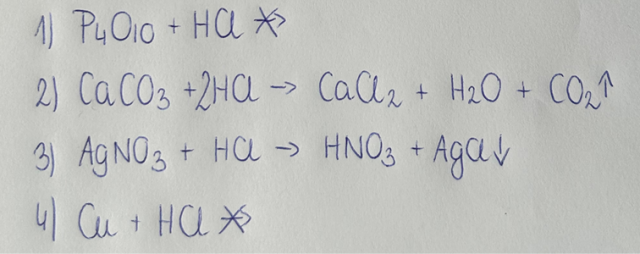 1) P₄O₁₀ + HCl ↛
2) CaCO₃ + 2HCl → CaCl₂ + H₂O + CO₂↑
3) AgNO₃ + HCl → HNO₃ + AgCl↓
4) Cu + HCl ↛